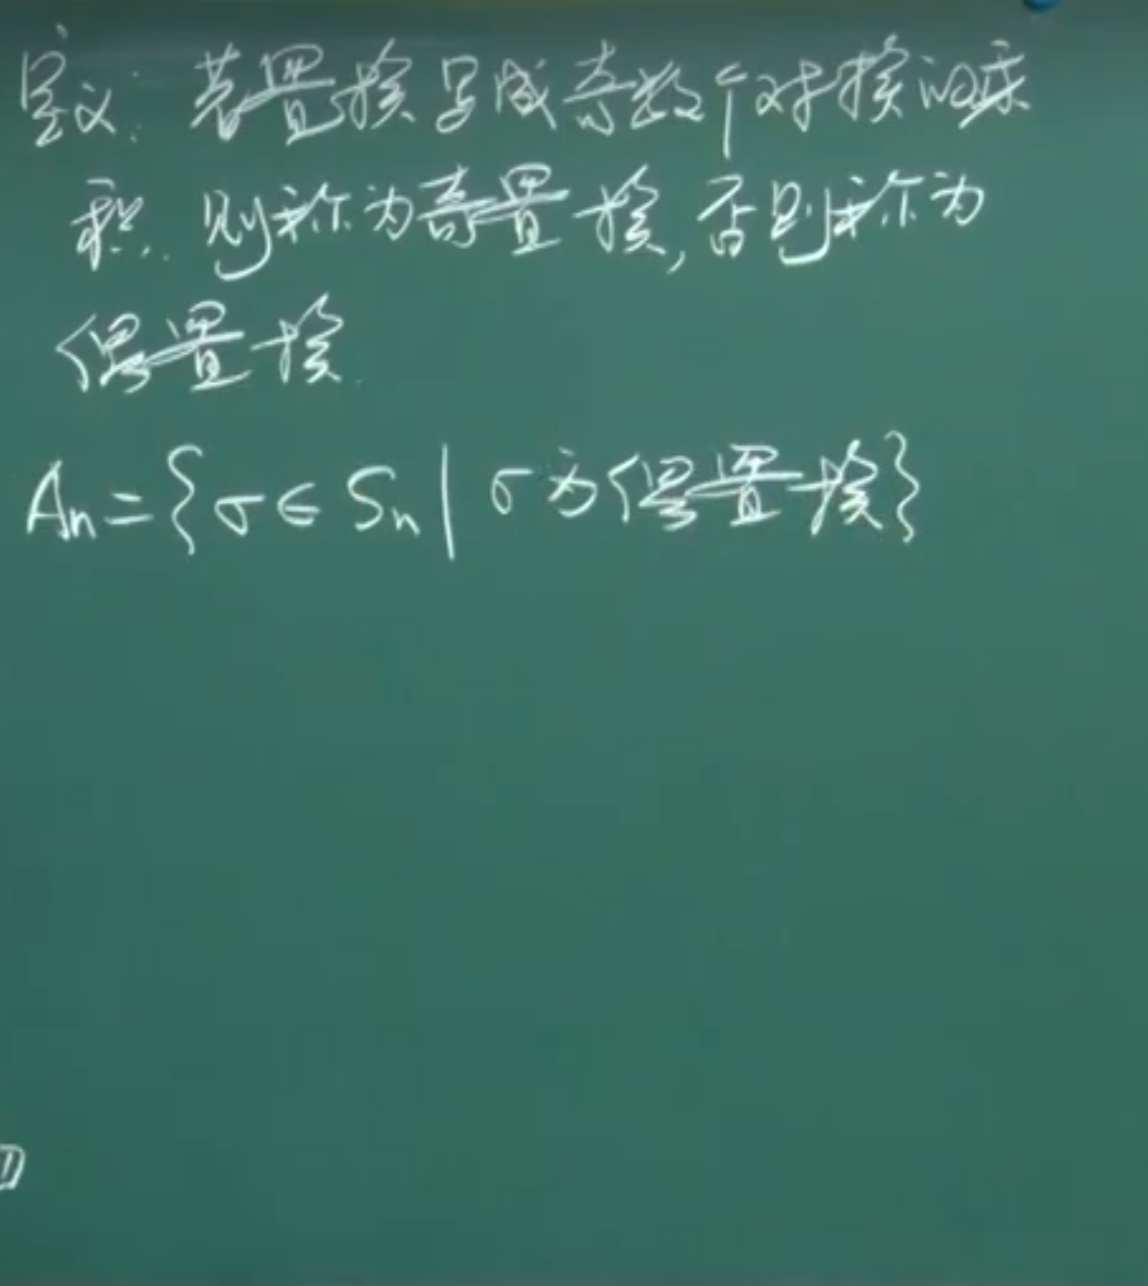 定义: 若置换写成奇数个对换的乘
积. 则称为奇置换, 否则称为
偶置换.
Aₙ={σ∈Sₙ| σ为偶置换}